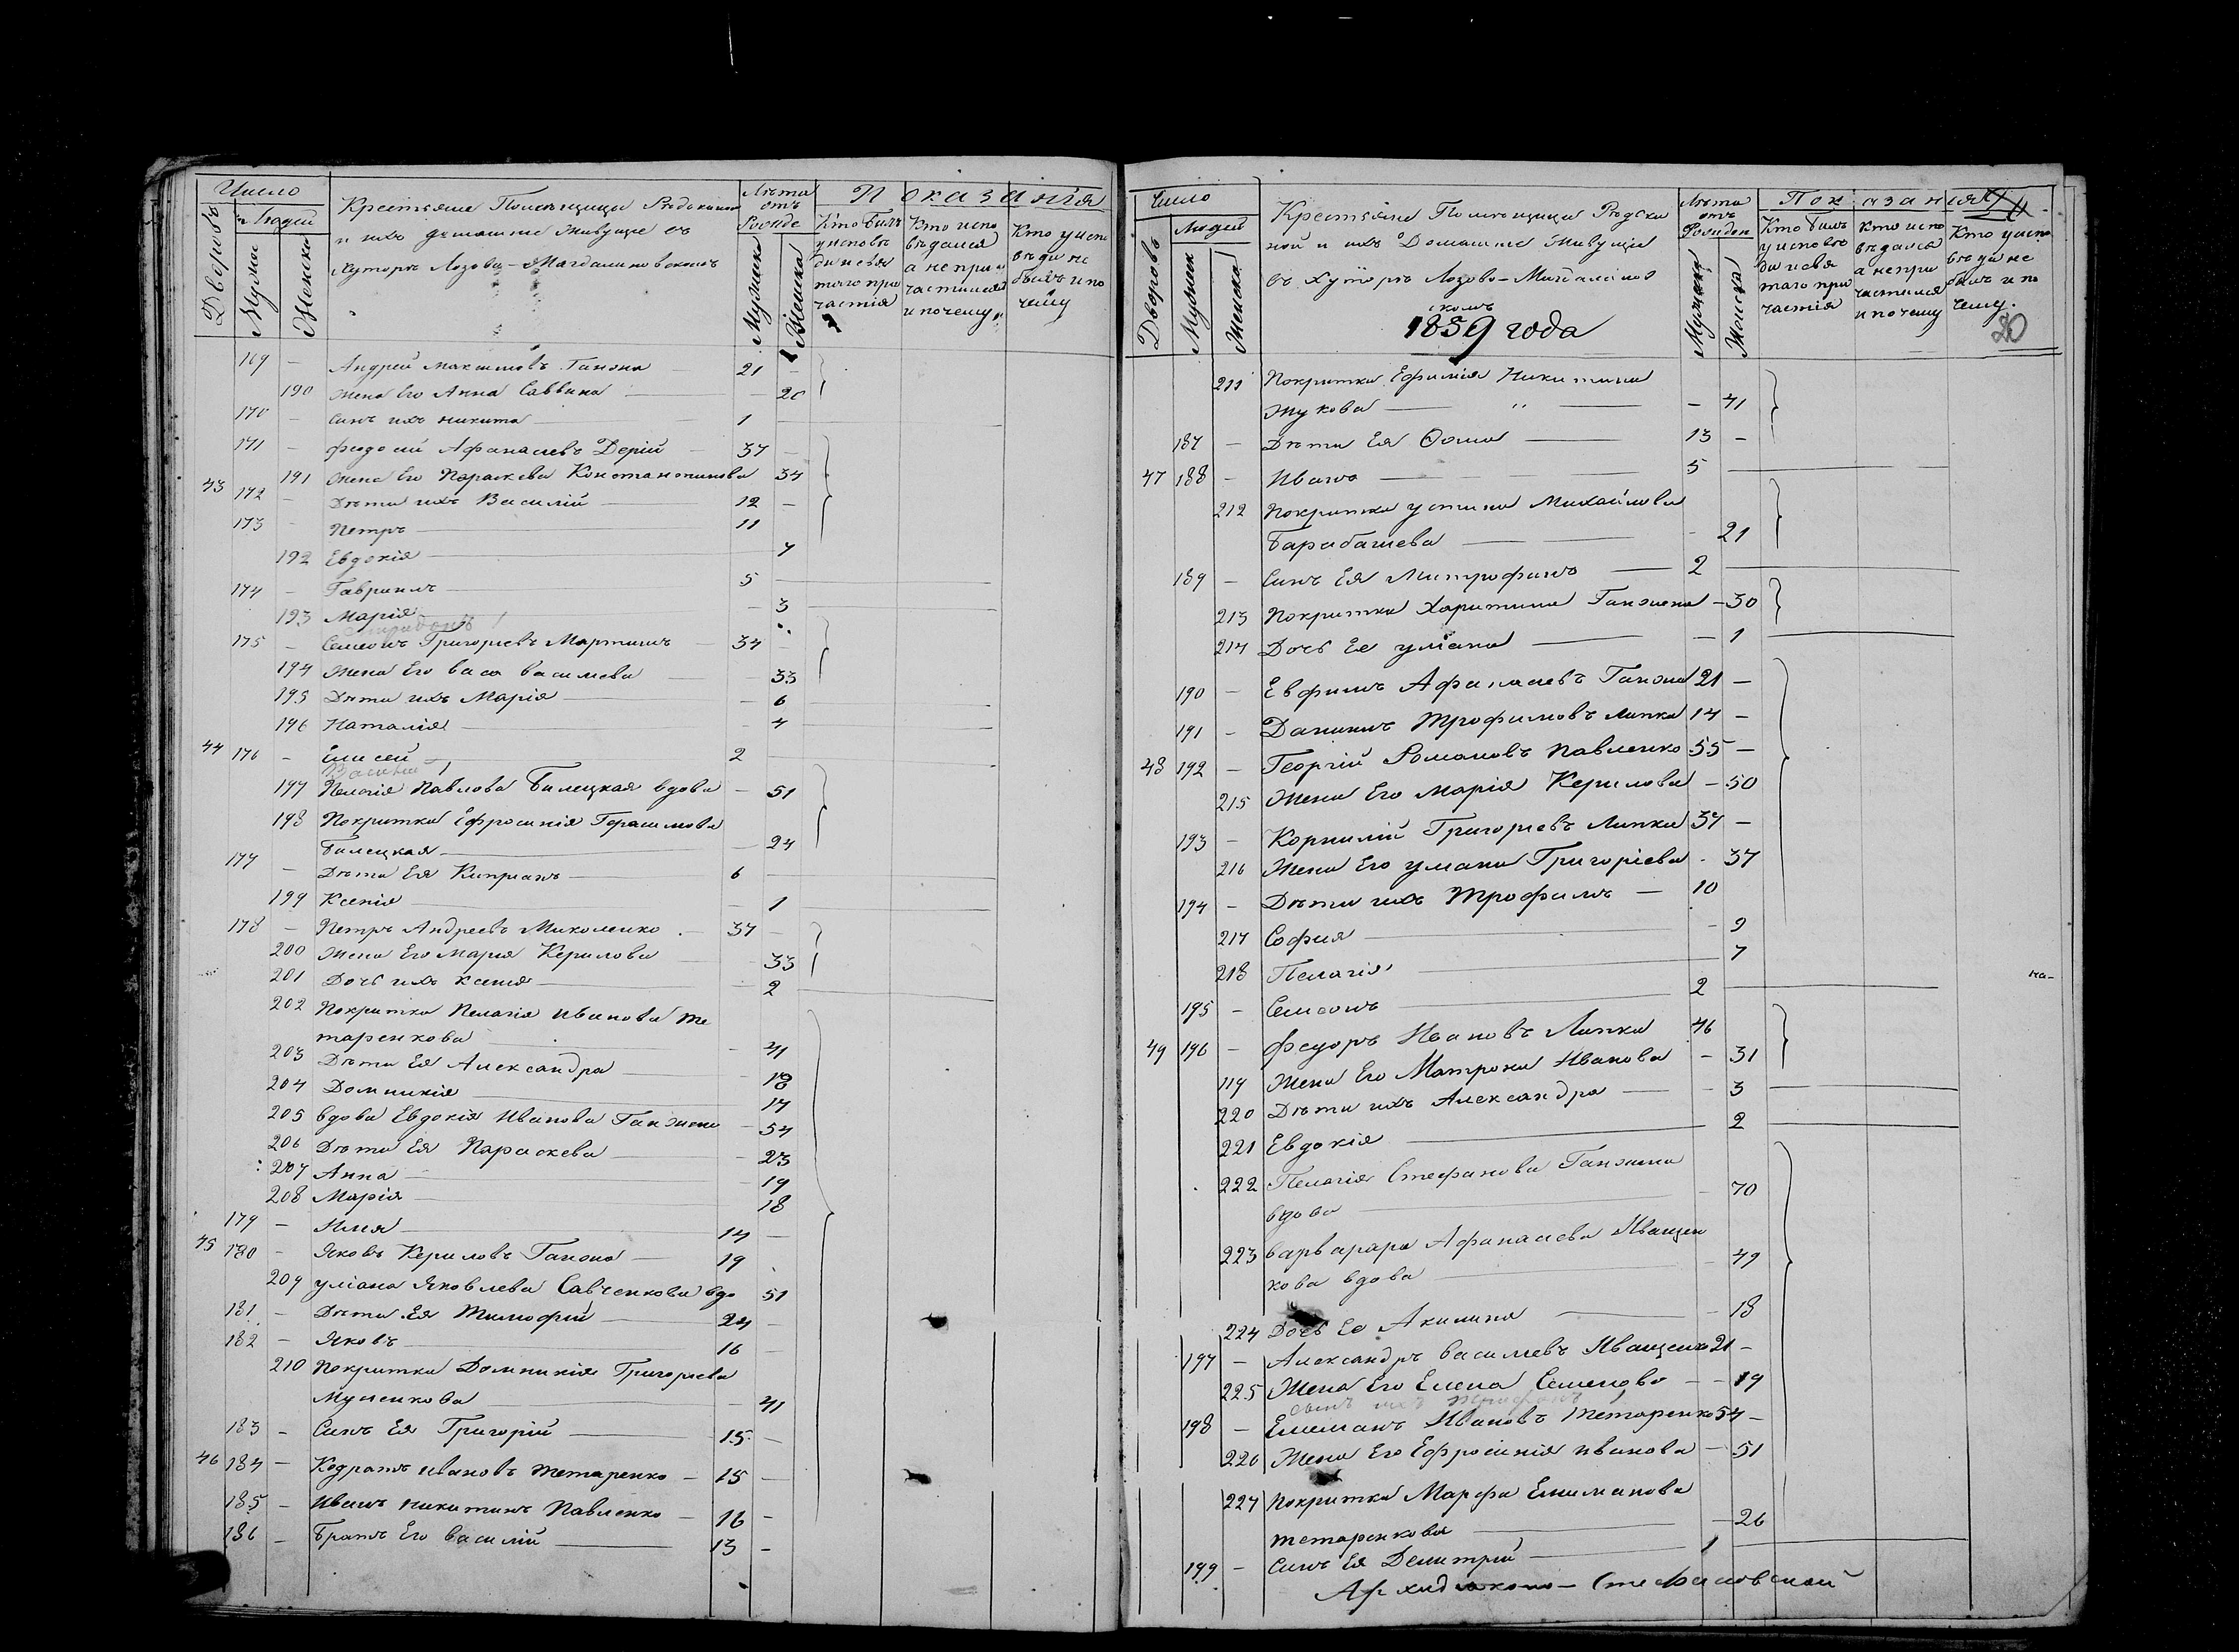 Число
Дворовъ
Людей
Мужска
Женска
Крестьяне Помѣщицы Родзянкин
и ихъ домашніе живущіе въ
хуторѣ Лозово-Магдалиновскомъ
Лѣта
отъ
Рожде
Мужска
Женска
Показанія
Кто былъ
у исповѣ
ди и свя
таго при
частія
Кто испо
вѣдался
а не при
частился
и почему
Кто у испо
вѣди не
былъ и по
чему
169 – Андрей Максимовъ Ганжа 21 –
190 Жена Его Анна Саввина – 20
170 – Сынъ ихъ Никита 1
171 – Феодосій Афанасіевъ Дерій 37 –
191 Жена Его Параскева Константинова 34
43 172 – Дѣти ихъ Василій 12 –
173 – Петръ 11
192 Евдокія 7
174 – Гавріилъ 5
193 Марія – 3
175 – Семеонъ Григорьевъ Мартинъ 34 –
194 Жена Его Васа Василева 33
195 Дѣти ихъ Марія – 6
196 Наталія – 4
44 176 – Елисей 2
197 Пелагія Павлова Билецкая вдова – 51
198 Покритка Ефросинія Герасимова
Билецкая – 24
177 – Дѣти Ея Кипріанъ 6
199 Ксенія – 1
178 – Петръ Андреевъ Миколенко 37 –
200 Жена Его Марія Керилова 33
201 Дочь ихъ Ксенія – 2
202 Покритка Пелагія Иванова Те
таренкова – 41
203 Дѣти Ея Александра – 18
204 Домникія 17
205 Вдова Евдокія Иванова Ганжина – 54
206 Дѣти Ея Параскева – 23
207 Анна – 19
208 Марія 18
179 – Илія 14 –
45 180 – Яковъ Кериловъ Ганжа 19
209 Уліана Яковлева Савченкова вдо 51
181 – Дѣти Ея Тимофій 24 –
182 – Яковъ 16 –
210 Покритка Домникія Григорьева
Мусіенкова – 41
183 – Сынъ Ея Григорій 15 –
46 184 – Кодратъ Ивановъ Тетаренко – 15 –
185 – Иванъ Никитинъ Павленко – 16 –
186 – Братъ Его Василій 13 –
Число
Дворовъ
Людей
Мужск
Женска
Крестьяне Помѣщицы Родзян
киной и ихъ Домашніе Живущіе
въ Хуторѣ Лозово-Магдалинов
скомъ
1859 года
Лѣта
отъ
Рожден
Мужска
Женска
Показанія
Кто былъ
у исповѣ
ди и свя
таго при
частія
Кто испо
вѣдался
а не при
частился
и почему
Кто у испо
вѣди не
былъ и по
чему.
20
211 Покритка Ефимія Никитина
Жукова – 41
187 – Дѣти Ея Ѳома 13 –
47 188 – Иванъ 5
212 Покритка Устина Михайлова
Барабашева – 21
189 – Сынъ Ея Митрофанъ 2
213 Покритка Харитина Ганжина – 30
214 Дочь Ее Уліана – 1
190 – Евфимъ Афанасіевъ Ганжа 21 –
191 – Даниилъ Трофимовъ Липка 14 –
48 192 – Георгій Романовъ Павленко 55 –
215 Жена Его Марія Керилова – 50
193 – Корнилій Григорьевъ Липка 37 –
216 Жена Его Уліана Григоріева – 37
194 – Дѣти ихъ Трофимъ – 10
217 София – 9
218 Пелагія 7
195 – Семеонъ 2
49 196 – Федоръ Ивановъ Липка 46
119 Жена Его Матрона Иванова – 31
220 Дѣти ихъ Александра – 3
221 Евдокія 2
222 Пелагія Стефанова Ганжина
вдова – 70
223 Варварара Афанасіева Иващен
кова вдова – 49
224 Дочь Ее Акилина – 18
197 – Александръ Василіевъ Иващенко 21 –
225 Жена Его Елена Семенова – 19
198 – Емелианъ Ивановъ Тетаренко 54 –
226 Жена Его Ефросинія Иванова – 51
227 Покритка Марфа Емилианова
Тетаренкова – 26
199 – Сынъ Ея Димитрій 1
Архидіаконо-Стефановской
на-